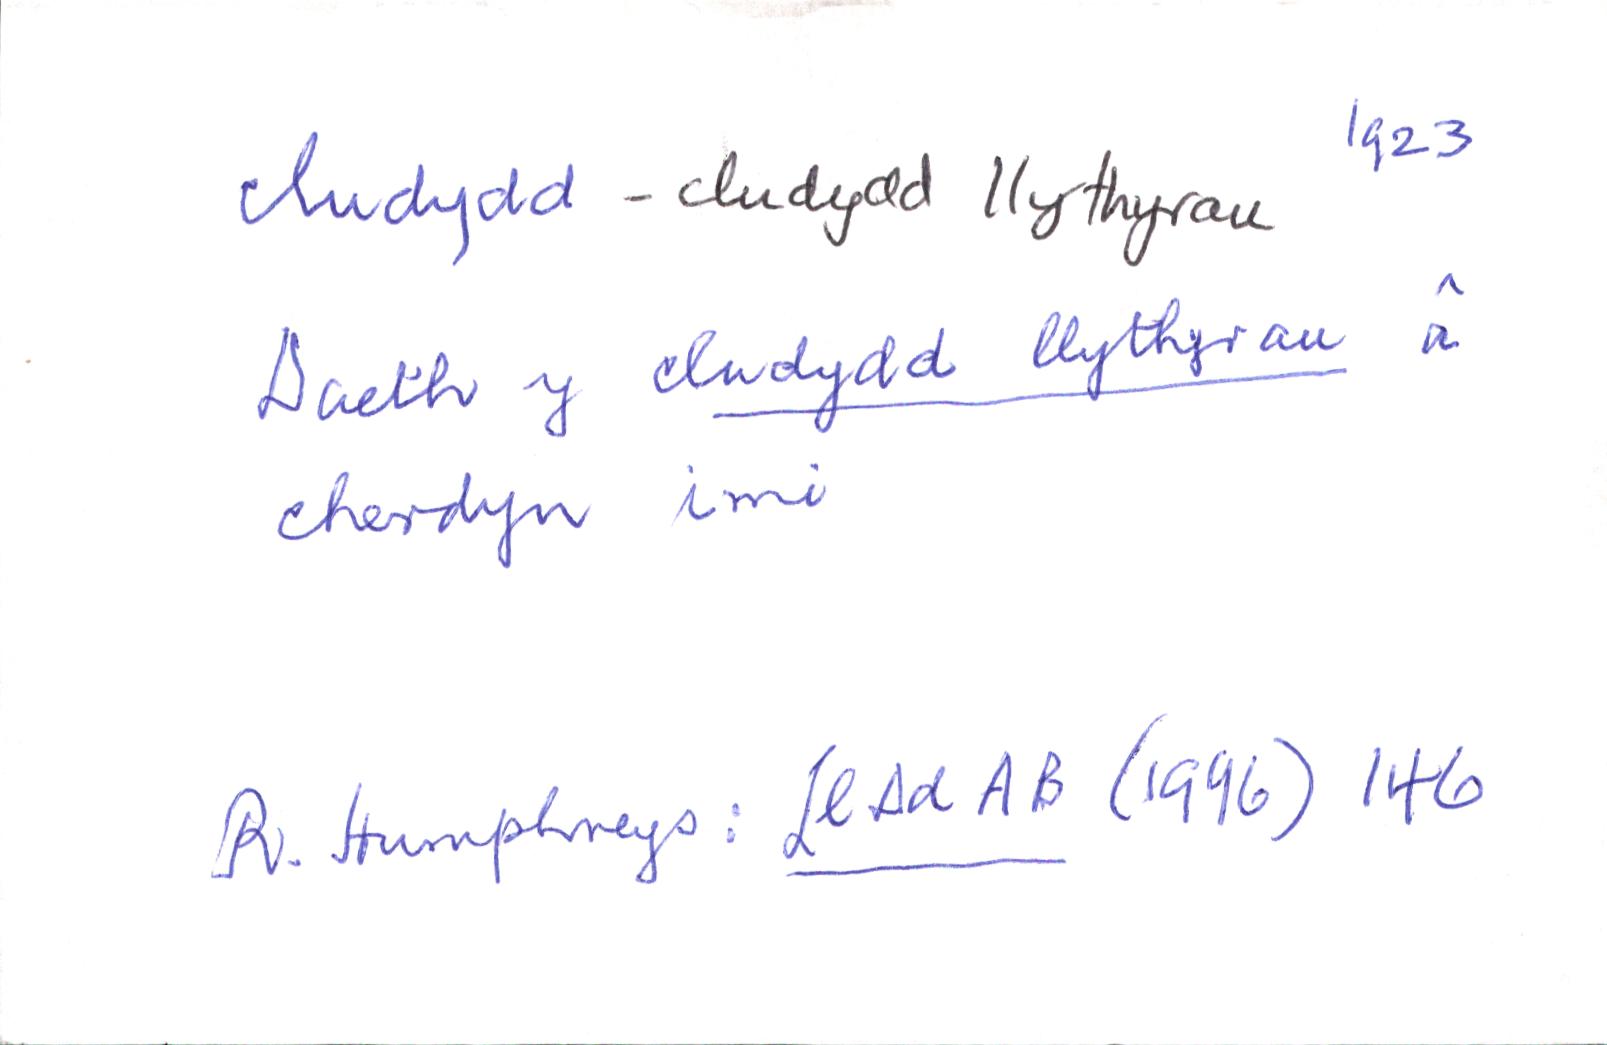 1923
cludydd - cludydd llythyrau
Daeth y cludydd llythyrau â
cherdyn imi
R. Humphreys: LlDdAB (1996) 146